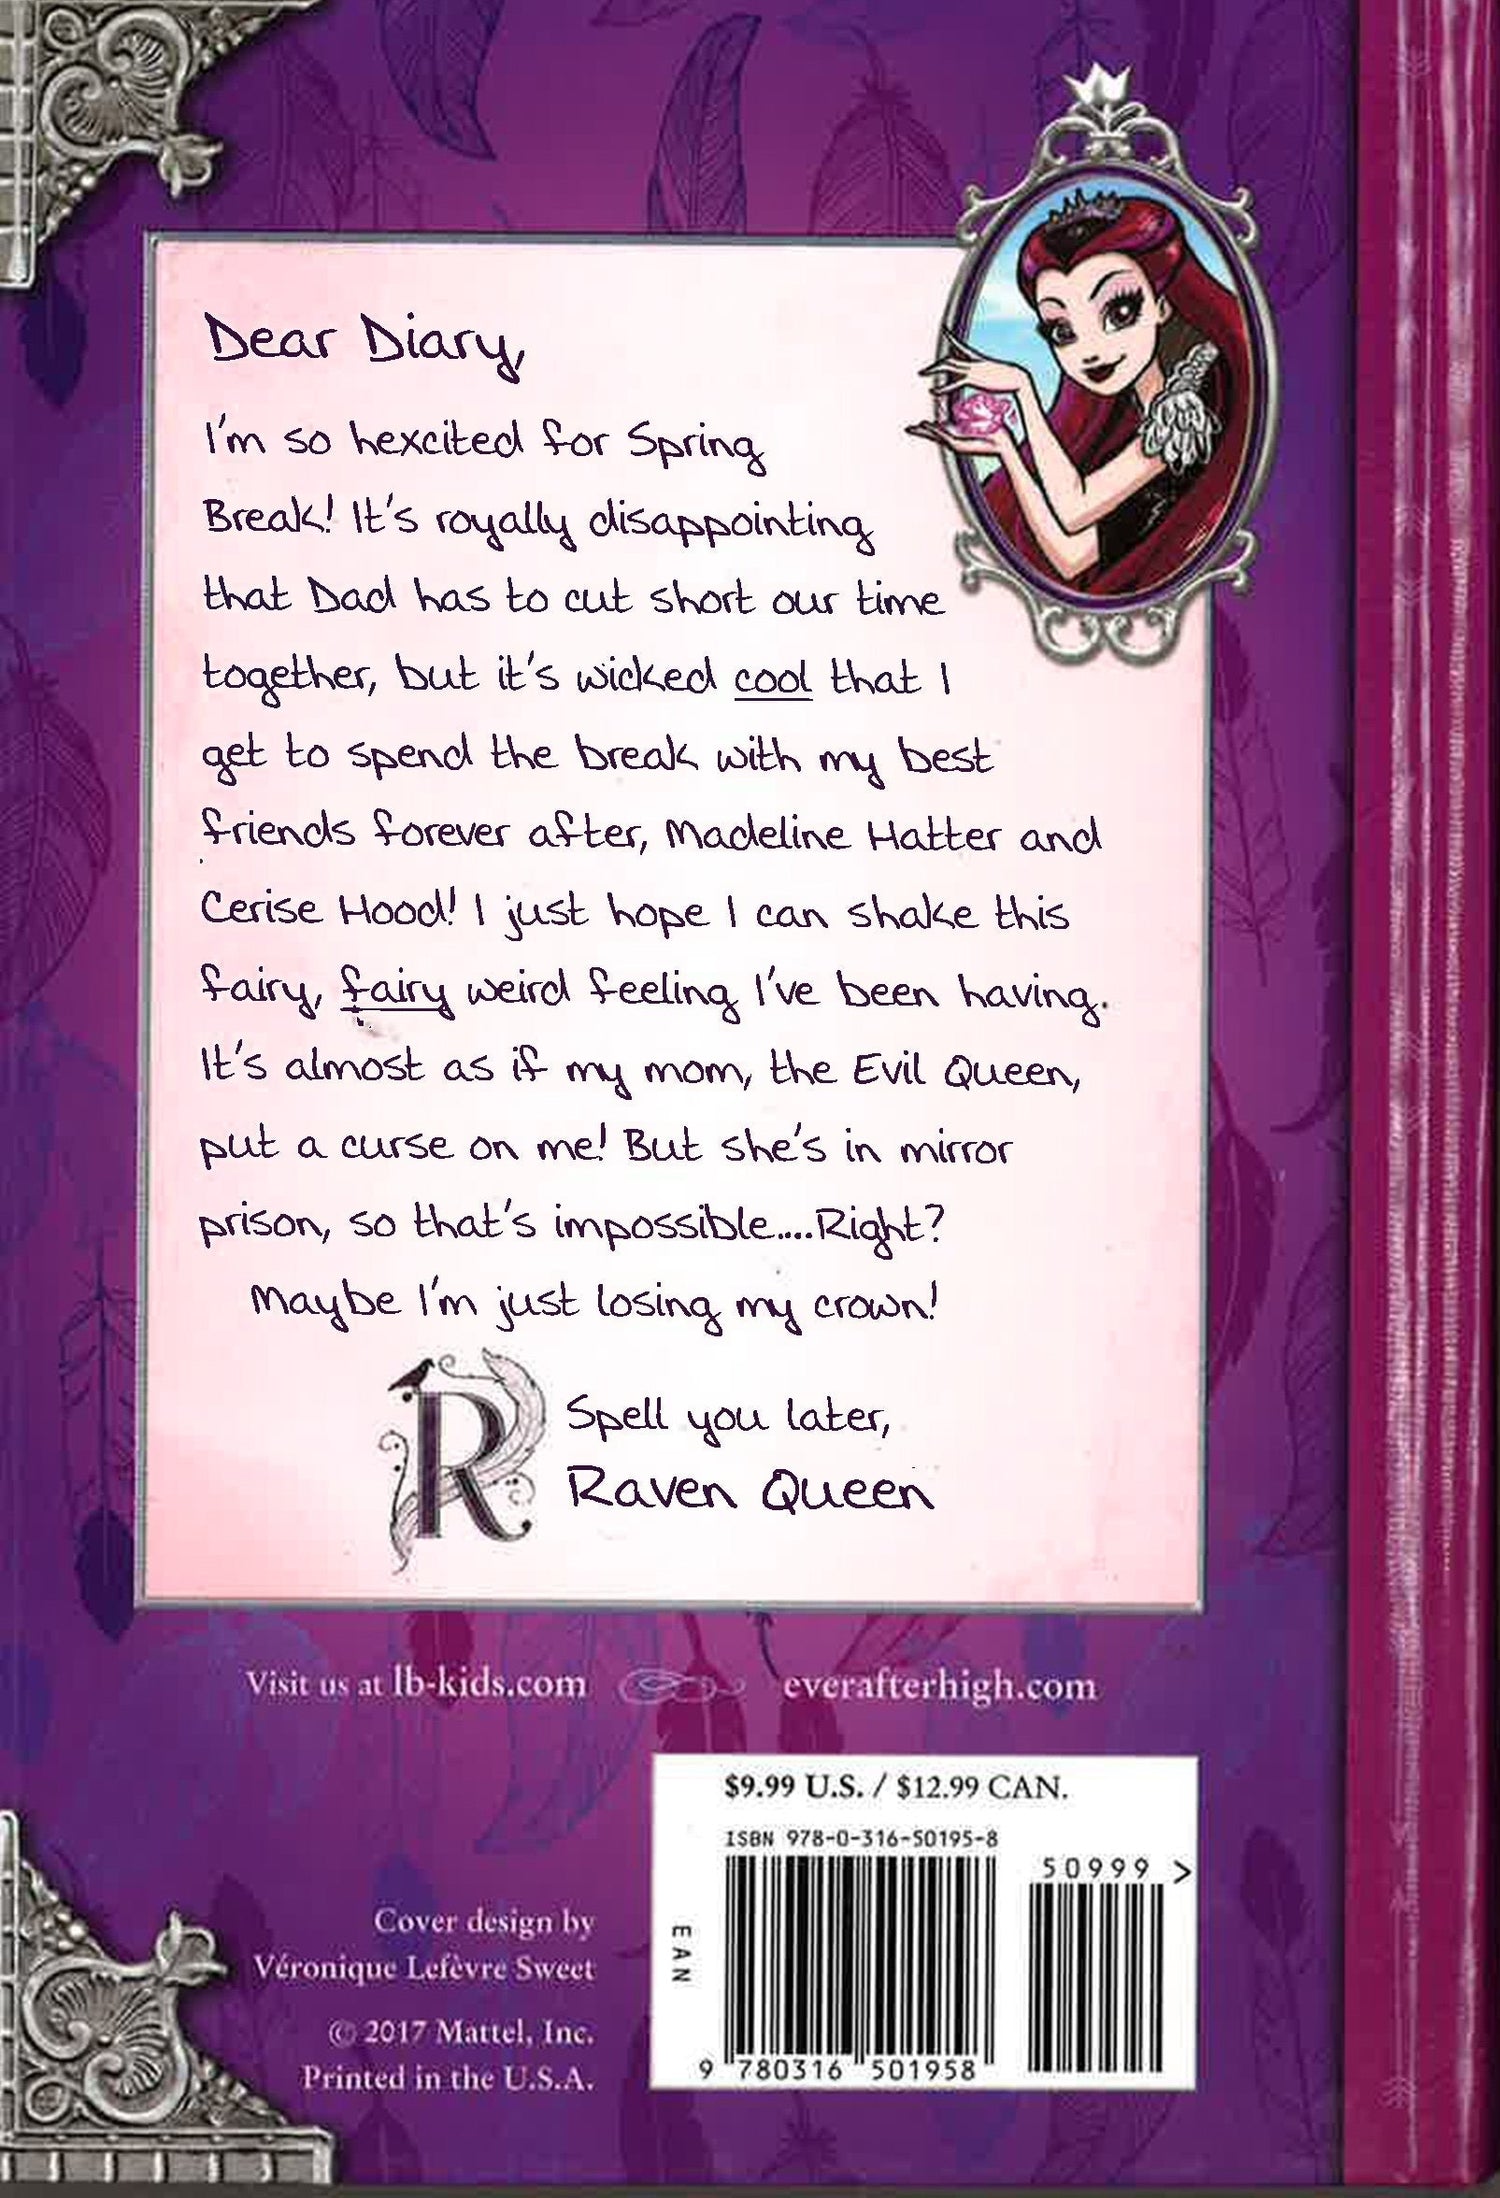 Dear Diary,
I'm so hexcited for Spring
Break! It's royally disappointing
that Dad has to cut short our time
together, but it's wicked cool that I
get to spend the break with my best
friends forever after, Madeline Hatter and
Cerise Hood! I just hope I can shake this
fairy, fairy weird feeling I've been having.
It's almost as if my mom, the Evil Queen,
put a curse on me! But she's in mirror
prison, so that's impossible....Right?
Maybe I'm just losing my crown!
R
Spell you later,
Raven Queen
Visit us at lb-kids.com everafterhigh.com
$9.99 U.S. / $12.99 CAN.
ISBN 978-0-316-50195-8
50999 >
EAN
9 780316 501958
Cover design by
Véronique Lefèvre Sweet
© 2017 Mattel, Inc.
Printed in the U.S.A.